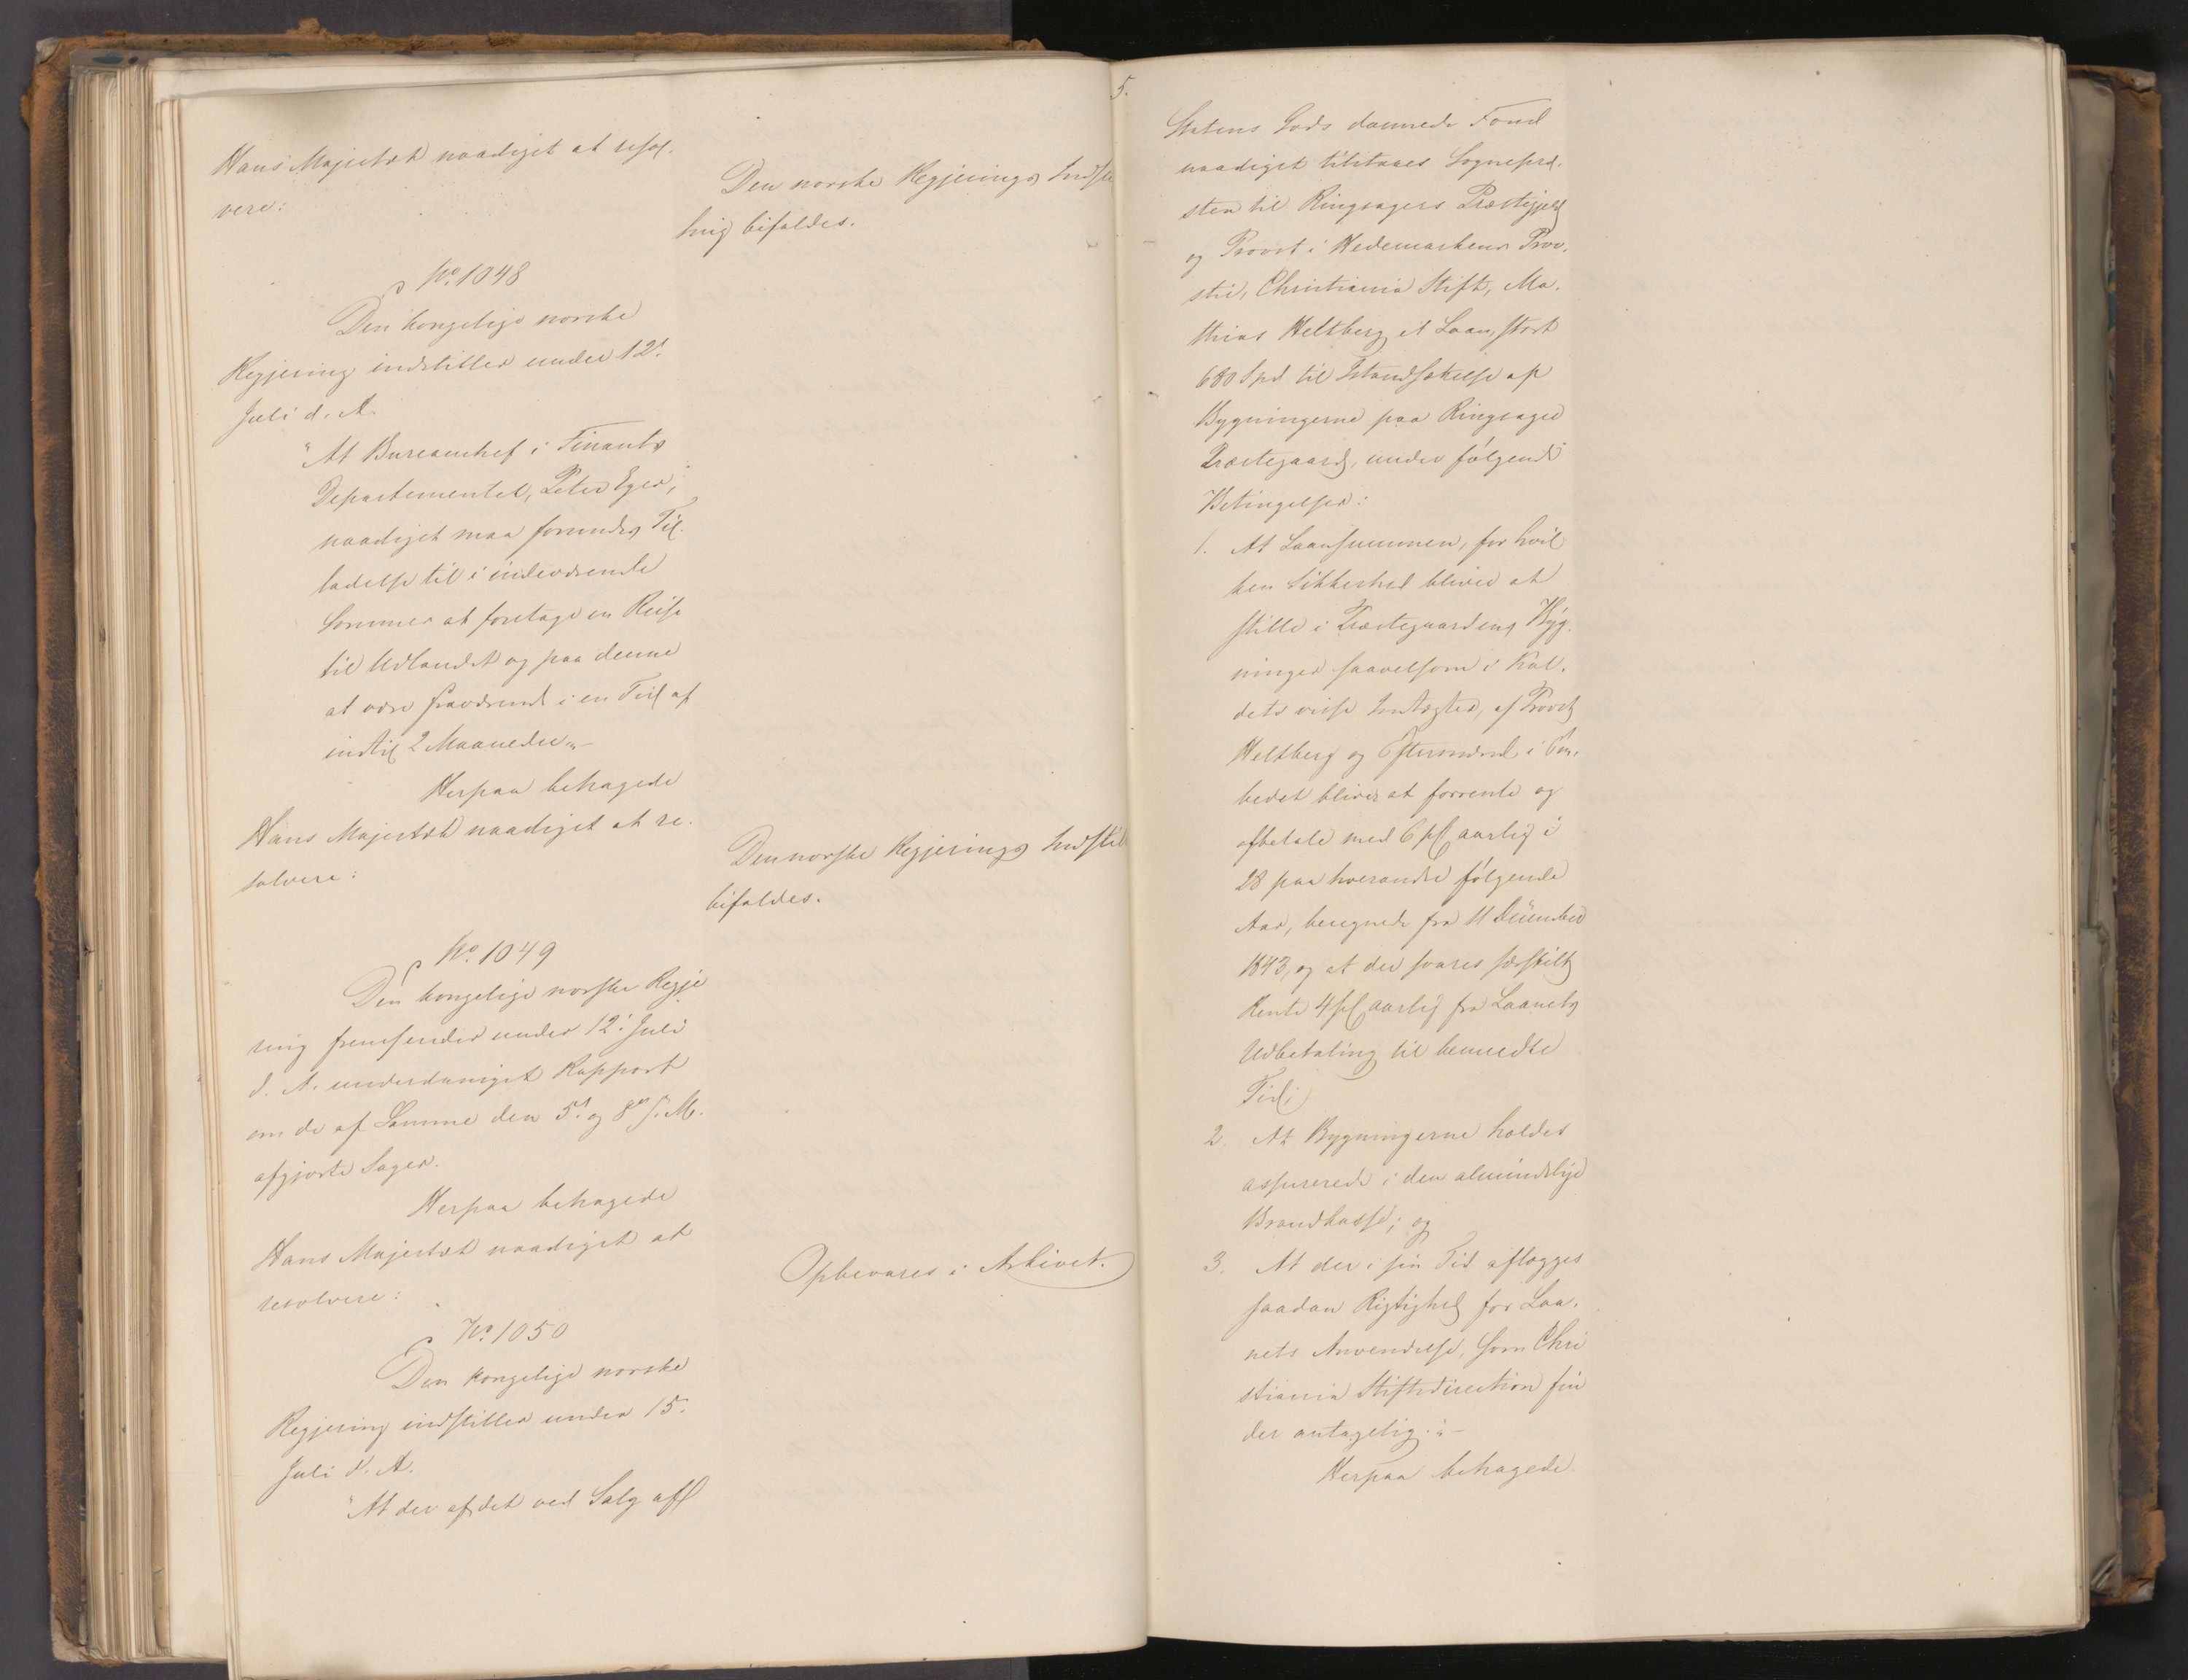 Hans Majestæt naadigst at resol-
vere:
Den norske Regjerings Indstil
ling bifaldes.
No. 1048
Den kongelige norske
Regjering indstiller under 12te
Juli d. A.
"At Bureauchef i Finants
Departementet, Peter Eger,
naadigst maa forundes Til-
ladelse til i indeværende
Sommer at foretage en Reise
til Udlandet og paa denne
at være fraværende i en Tid af
indtil 2 Maaneder"-
Herpaa behagede
Hans Majestæt naadigst at re-
solvere:
Den norske Regjerings Indstil
bifaldes.
No. 1049
Den kongelige norske Regje
ring fremsender under 12te Juli
d. A. underdanigst Rapport
om de af Samme den 5te og 8de s. M.
afgjorte Sager.
Herpaa behagede
Hans Majestæt naadigst at
resolvere:
Opbevares i Arkivet.
No. 1050
Den kongelige norske
Regjering indstiller under 15.
Juli d. A.
"At der af det ved Salg af
5.
Statens Gods dannede Fond
naadigst tilstaaes Sognepræ-
sten til Ringsagers Præstegjeld
og Provst i Hedemarkens Prov-
stie, Christiania Stift, Ma-
thias Heltberg, et Laan, stort
680 Spd til Istandsættelse af
Bygningerne paa Ringsager
Præstegaard, under følgende
Betingelser:
1. At Laansummen, for hvil
ken Sikkerhed bliver at
stille i Præstegaardens Byg-
ninger saavelsom i Kal-
dets visse Indtægter, af Provst
Heltberg og Eftermænd i Em-
bedet bliver at forrente og
afbetale med 6 pCt aarlig i
28 paa hverandre følgende
Aar, beregnede fra 11 December
1843, og at der svares særskilt
Rente 4 pCt aarlig fra Laanets
Udbetaling til bemeldte
Tid;
2. At Bygningerne holdes
assurerede i den almindelige
Brandkasse; og
3. At der i sin Tid aflægges
saadan Rigtighed for Laa-
nets Anvendelse, som Chri
stiania Stiftsdirection fin
der antagelig."-
Herpaa behagede